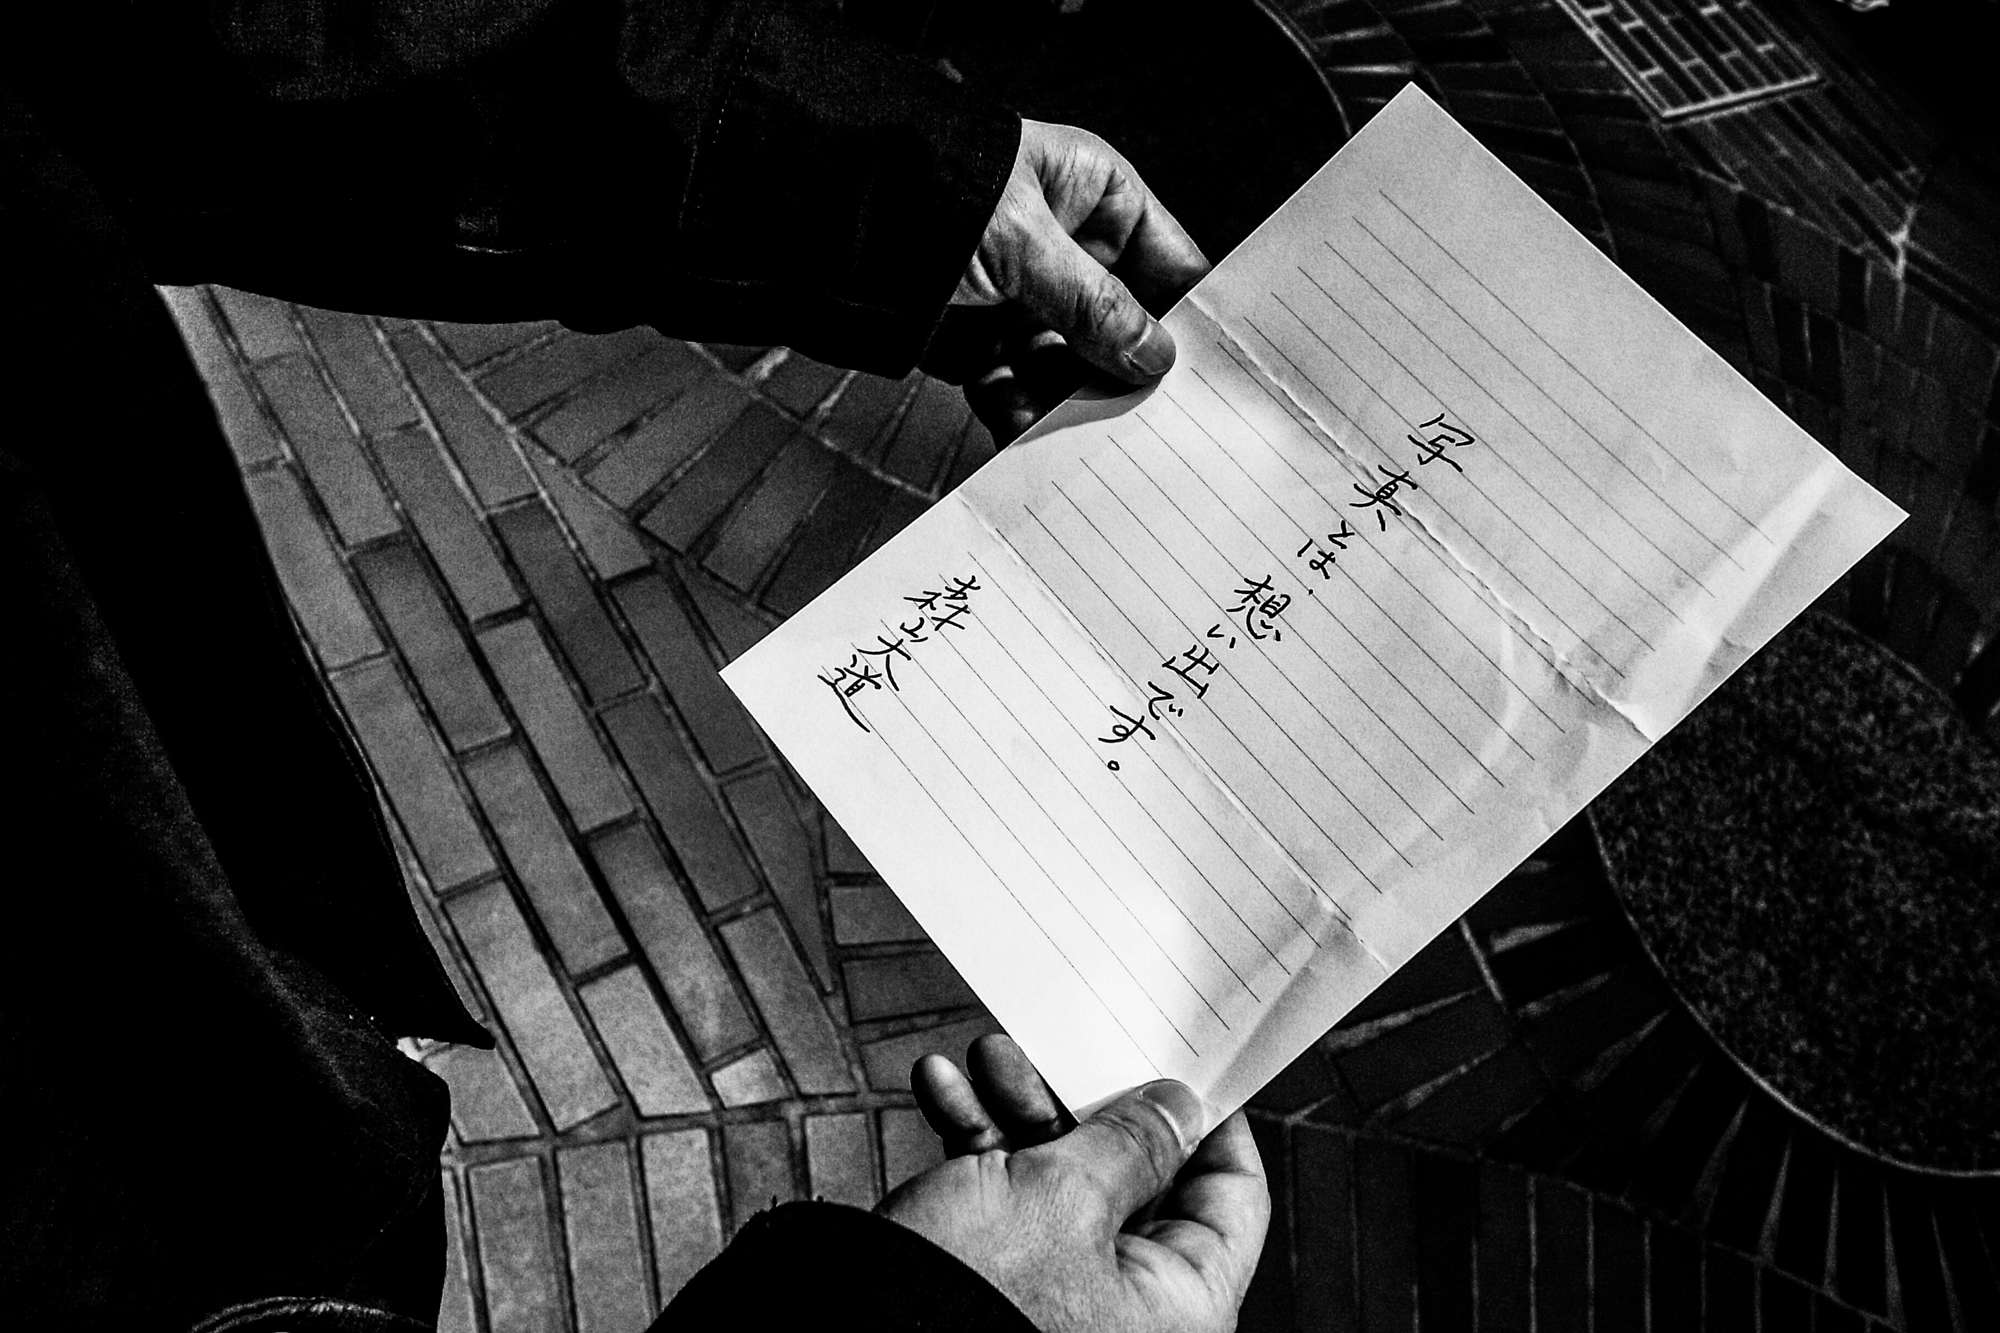 写真とは、
想い出です。
森山大道